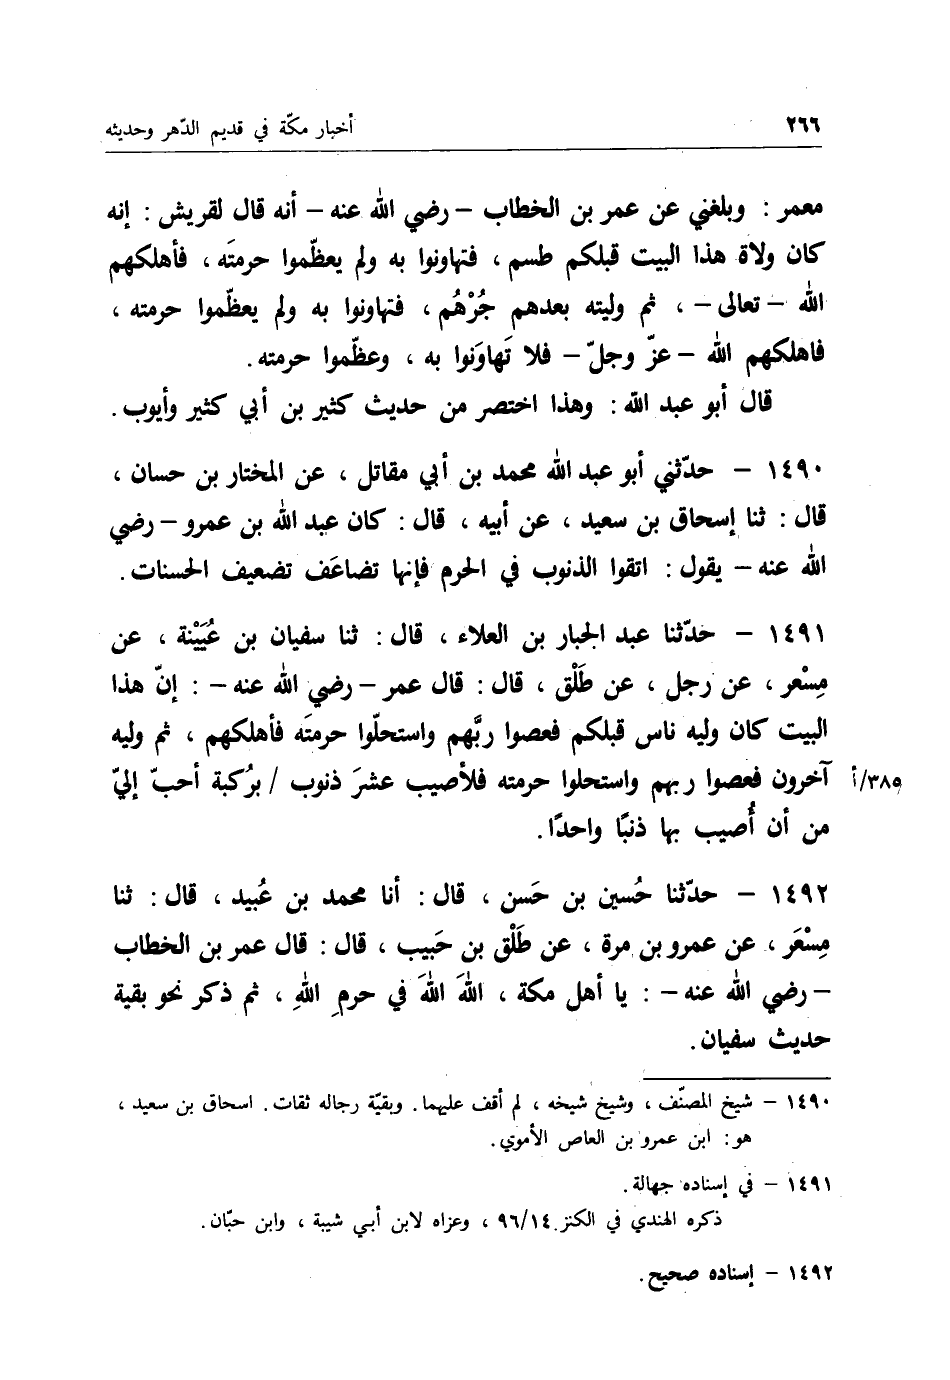 ٢٦٦ أخبار مكّة في قديم الدّهر وحديثه
معمر : وبلغني عن عمر بن الخطاب – رضي الله عنه – أنه قال لقريش : إنه
كان ولاة هذا البيت قبلكم طسم ، فتهاونوا به ولم يعظّموا حرمتَه ، فأهلكهم
الله – تعالى – ، ثم وليته بعدهم جُرْهُم ، فتهاونوا به ولم يعظّموا حرمته ،
فاهلكهم الله – عزّ وجلّ – فلا تَهاوَنوا به ، وعظّموا حرمته .
قال أبو عبد الله : وهذا اختصر من حديث كثير بن أبي كثير وأيوب .
١٤٩٠ – حدّثني أبو عبد الله محمد بن أبي مقاتل ، عن المختار بن حسان ،
قال : ثنا إسحاق بن سعيد ، عن أبيه ، قال : كان عبد الله بن عمرو – رضي
الله عنه – يقول : اتقوا الذنوب في الحرم فإنها تضاعَف تضعيف الحسنات .
١٤٩١ – حدّثنا عبد الجبار بن العلاء ، قال : ثنا سفيان بن عُيَيْنة ، عن
مِسْعر ، عن رجل ، عن طَلْق ، قال : قال عمر – رضي الله عنه – : إنّ هذا
البيت كان وليه ناس قبلكم فعصوا ربَّهم واستحلّوا حرمتَه فأهلكهم ، ثم وليه
آخرون فعصوا ربهم واستحلوا حرمته فلأصيب عشرَ ذنوب / برُكبة أحبّ إليّ
٣٨٥/أ
من أن أُصيب بها ذنبًا واحدًا .
١٤٩٢ – حدّثنا حُسين بن حَسن ، قال : أنا محمد بن عُبيد ، قال : ثنا
مِسْعَر ، عن عمرو بن مرة ، عن طَلْق بن حَبيب ، قال : قال عمر بن الخطاب
– رضي الله عنه – : يا أهل مكة ، اللهَ اللهَ في حرمِ اللهِ ، ثم ذكر نحو بقية
حديث سفيان .
١٤٩٠ – شيخ المصنّف ، وشيخ شيخه ، لم أقف عليهما . وبقيّة رجاله ثقات . اسحاق بن سعيد ،
هو : ابن عمرو بن العاص الأموي .
١٤٩١ – في إسناده جهالة .
ذكره الهندي في الكنز ٩٦/١٤ ، وعزاه لابن أبي شيبة ، وابن حبّان .
١٤٩٢ – إسناده صحيح .